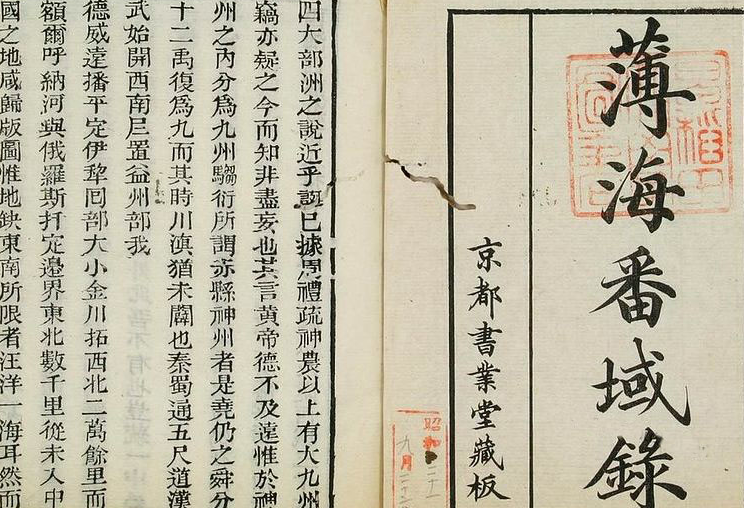 薄海番域錄
京都書業堂藏板
昭和
九月
四大部洲之說近乎誕已據周禮疏神農以上有大九州
竊亦疑之今而知非盡妄也其言黃帝德不及遠惟於神
州之內分爲九州騶衍所謂赤縣神州者是堯仍之舜分
十二禹復爲九而其時川滇猶未闢也秦蜀通五尺道漢
武始開西南尼置益州部我
德威遠播平定伊犂回部大小金川拓西北二萬餘里而
額爾呼納河與俄羅斯扦定邊界東北數千里從未入中
國之地咸歸版圖惟地缺東南所限者汪洋一海耳然而